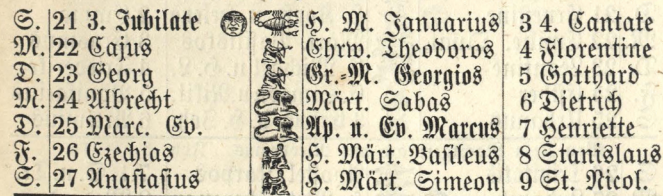 S. 21 3. Jubilate H. M. Januarius 3 4. Cantate
M. 22 Cajus Ehrw. Theodoros 4 Florentine
D. 23 Georg Gr.-M. Georgios 5 Gotthard
M. 24 Albrecht Märt. Sabas 6 Dietrich
D. 25 Marc. Ev. Ap. u. Ev. Marcus 7 Henriette
F. 26 Ezechias H. Märt. Basileus 8 Stanislaus
S. 27 Anastasius H. Märt. Simeon 9 St. Nicol.